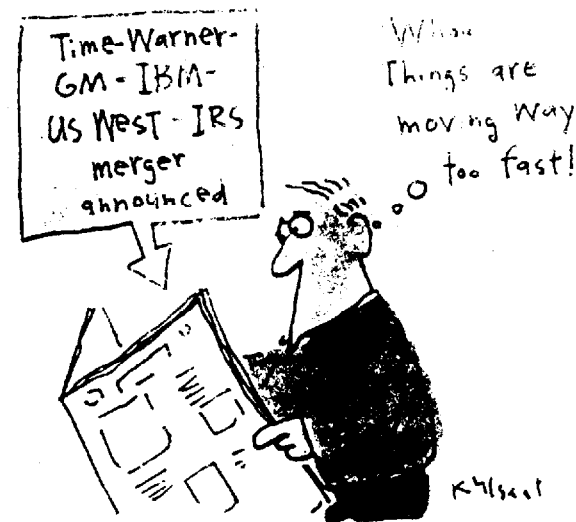 Time-Warner-
GM-IBM-
US West-IRS
merger
announced
Whoa
Things are
moving way
too fast!